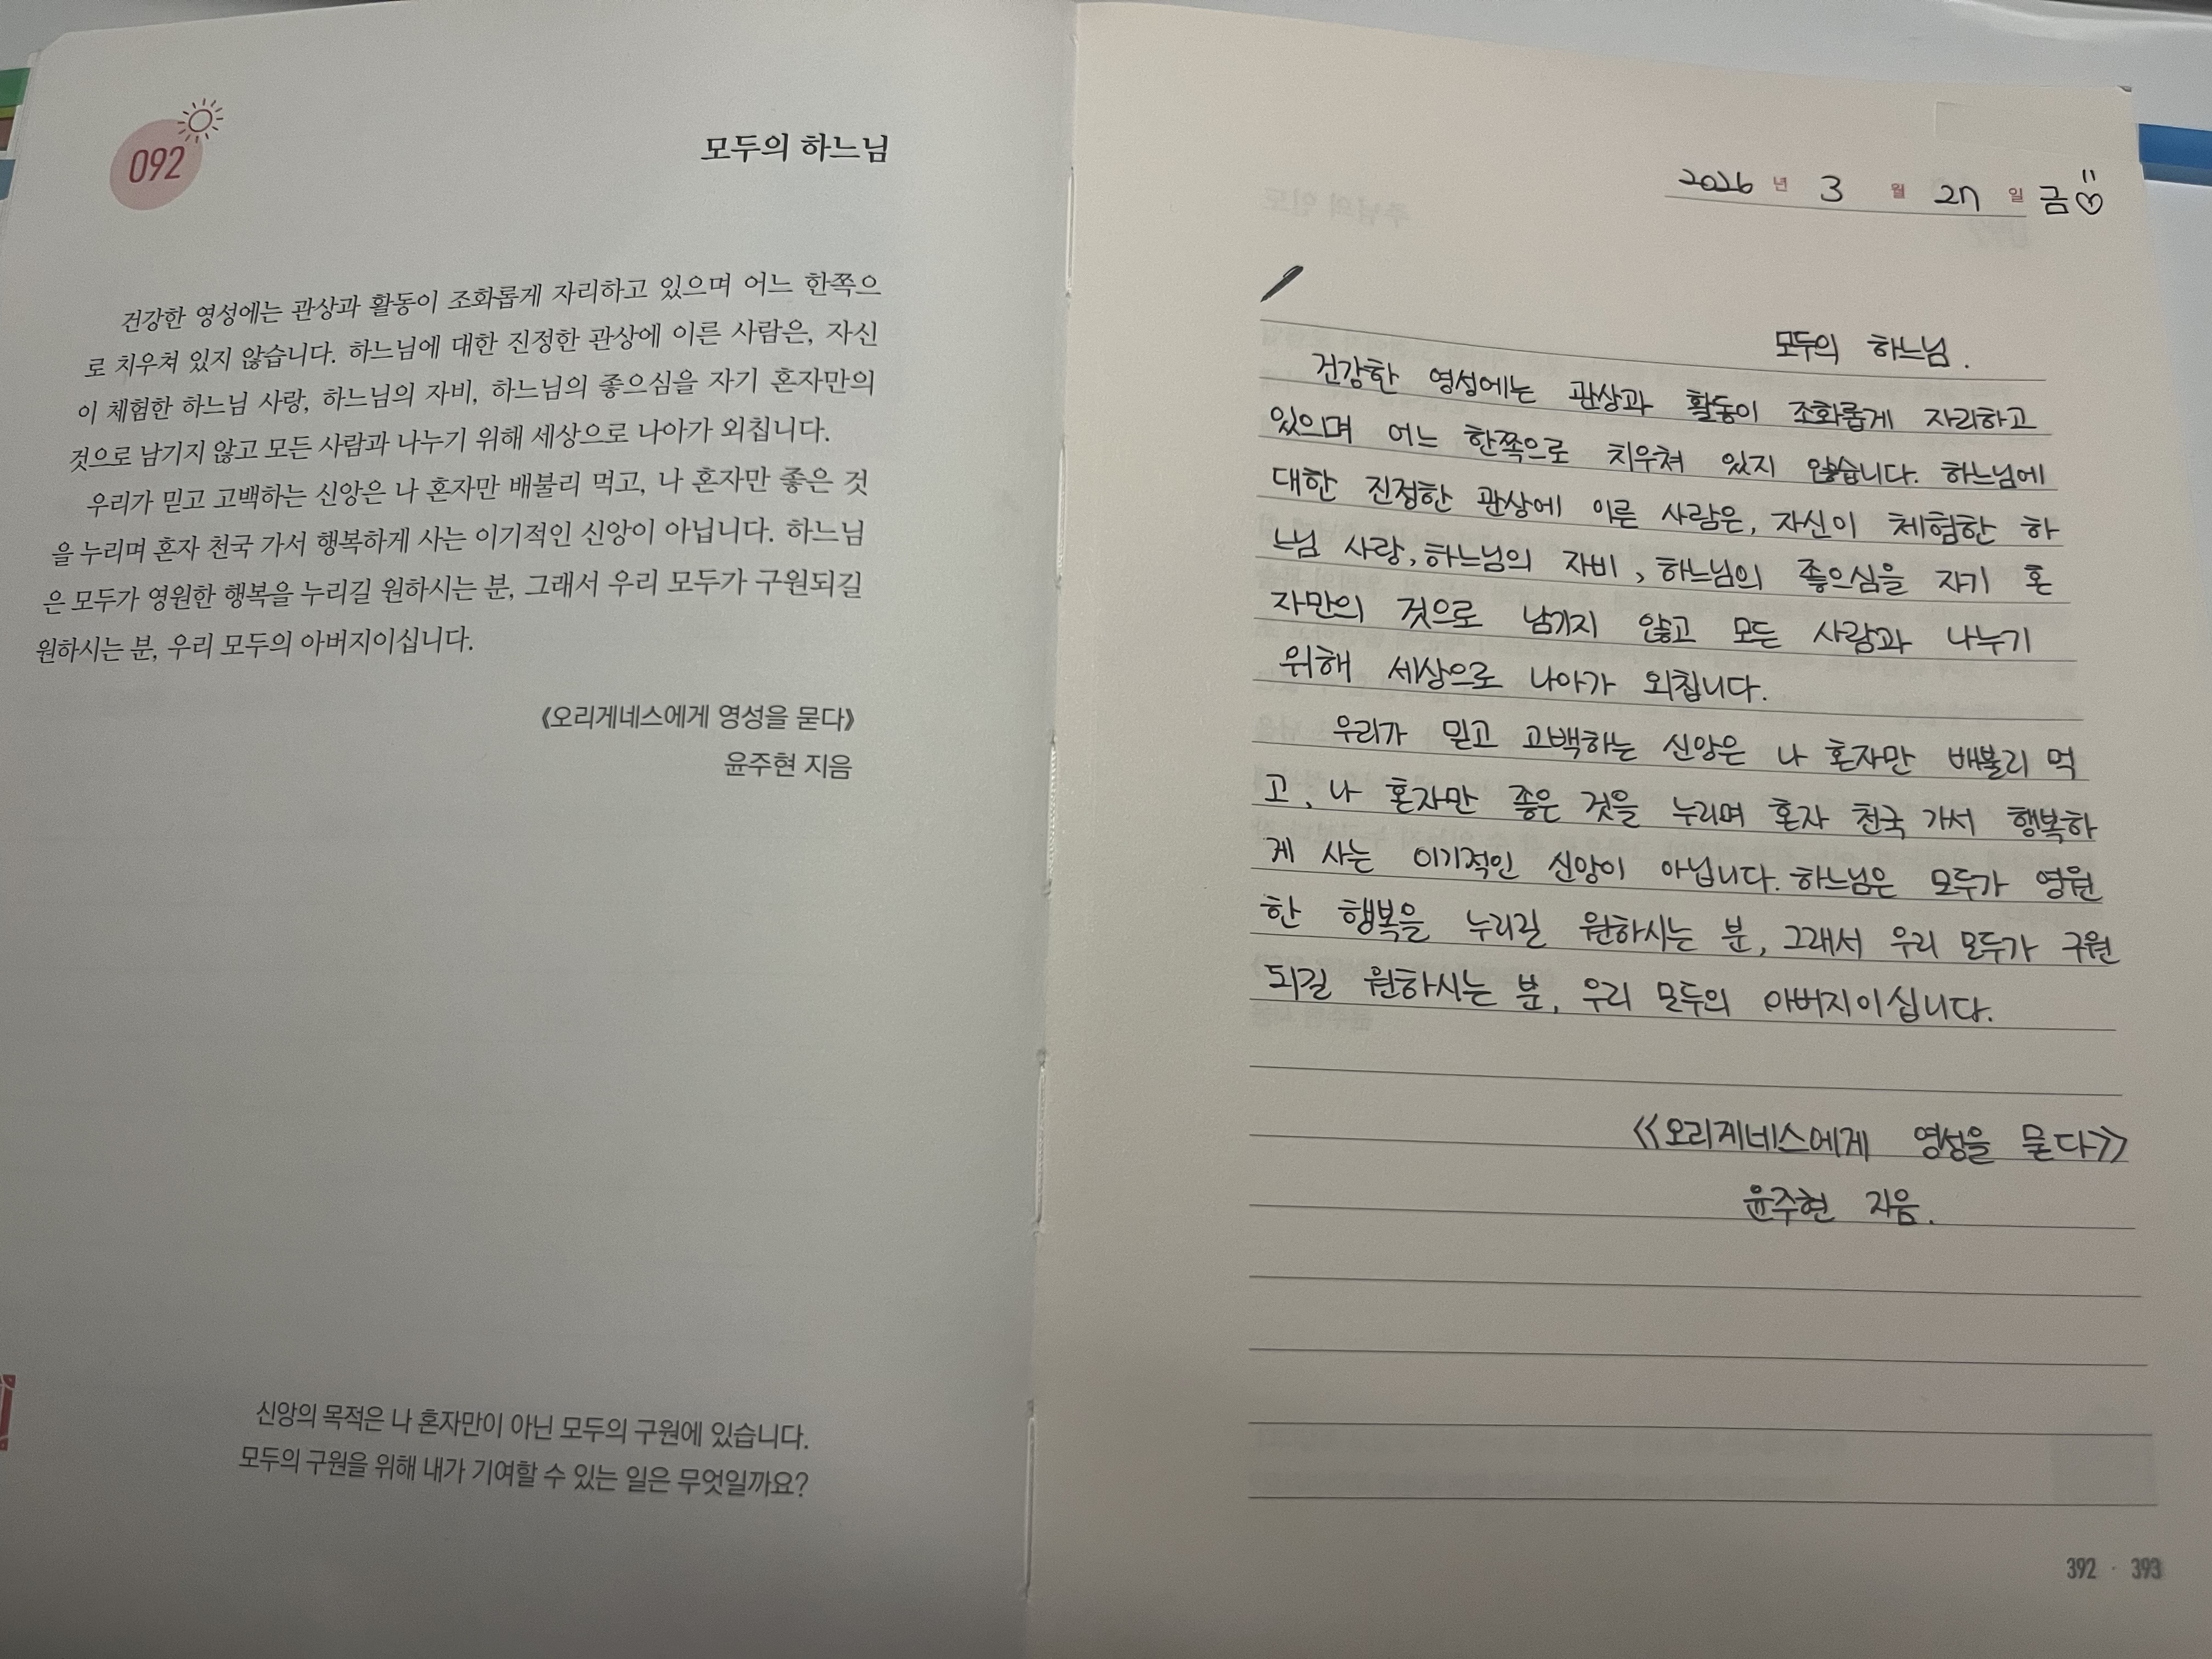 092
모두의 하느님
건강한 영성에는 관상과 활동이 조화롭게 자리하고 있으며 어느 한쪽으
로 치우쳐 있지 않습니다. 하느님에 대한 진정한 관상에 이른 사람은, 자신
이 체험한 하느님 사랑, 하느님의 자비, 하느님의 좋으심을 자기 혼자만의
것으로 남기지 않고 모든 사람과 나누기 위해 세상으로 나아가 외칩니다.
우리가 믿고 고백하는 신앙은 나 혼자만 배불리 먹고, 나 혼자만 좋은 것
을 누리며 혼자 천국 가서 행복하게 사는 이기적인 신앙이 아닙니다. 하느님
은 모두가 영원한 행복을 누리길 원하시는 분, 그래서 우리 모두가 구원되길
원하시는 분, 우리 모두의 아버지이십니다.
《오리게네스에게 영성을 묻다》
윤주현 지음
신앙의 목적은 나 혼자만이 아닌 모두의 구원에 있습니다.
모두의 구원을 위해 내가 기여할 수 있는 일은 무엇일까요?
2026 년 3 월 27 일 금
모두의 하느님.
건강한 영성에는 관상과 활동이 조화롭게 자리하고
있으며 어느 한쪽으로 치우쳐 있지 않습니다. 하느님에
대한 진정한 관상에 이른 사람은, 자신이 체험한 하
느님 사랑, 하느님의 자비, 하느님의 좋으심을 자기 혼
자만의 것으로 남기지 않고 모든 사람과 나누기
위해 세상으로 나아가 외칩니다.
우리가 믿고 고백하는 신앙은 나 혼자만 배불리 먹
고, 나 혼자만 좋은 것을 누리며 혼자 천국 가서 행복하
게 사는 이기적인 신앙이 아닙니다. 하느님은 모두가 영원
한 행복을 누리길 원하시는 분, 그래서 우리 모두가 구원
되길 원하시는 분, 우리 모두의 아버지이십니다.
<<오리게네스에게 영성을 묻다>>
윤주현 지음.
392 · 393